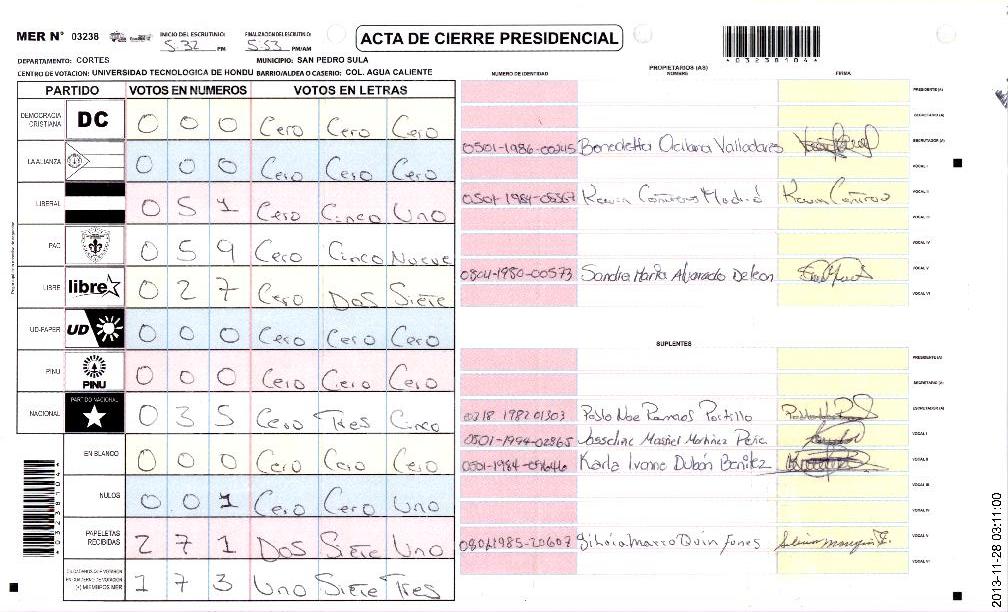 MER N° 03238 INICIO DEL ESCRUTINIO: 5:32 PM FINALIZACION DEL ESCRUTINIO: 5:53 PM/AM
ACTA DE CIERRE PRESIDENCIAL
*03238104*
DEPARTAMENTO: CORTES MUNICIPIO: SAN PEDRO SULA
CENTRO DE VOTACION: UNIVERSIDAD TECNOLOGICA DE HONDU BARRIO/ALDEA O CASERIO: COL. AGUA CALIENTE
PARTIDO VOTOS EN NUMEROS VOTOS EN LETRAS
DEMOCRACIA CRISTIANA DC 0 0 0 Cero Cero Cero
LA ALIANZA 0 0 0 Cero Cero Cero
LIBERAL 0 5 1 Cero Cinco Uno
PAC 0 5 9 Cero Cinco Nueve
LIBRE libre 0 2 7 Cero Dos Siete
UD-FAPER UD 0 0 0 Cero Cero Cero
PINU PINU 0 0 0 Cero Cero Cero
NACIONAL PARTIDO NACIONAL 0 3 5 Cero Tres Cinco
EN BLANCO 0 0 0 Cero Cero Cero
NULOS 0 0 1 Cero Cero Uno
PAPELETAS RECIBIDAS 2 7 1 Dos Siete Uno
CIUDADANOS QUE VOTARON EN CUADERNO DE VOTACION (+) MIEMBROS MER 1 7 3 Uno Siete Tres
PROPIETARIOS (AS)
NUMERO DE IDENTIDAD NOMBRE FIRMA
PRESIDENTE (A)
SECRETARIO (A)
0501-1986-00245 Benedetta Valladares ESCRUTADOR (A)
VOCAL I
Kevin VOCAL II
VOCAL III
VOCAL IV
0801-1980-00573 Sandra Maria Alvarado Deleon VOCAL V
VOCAL VI
SUPLENTES
PRESIDENTE (A)
SECRETARIO (A)
0218 1982 01303 Pablo Noe Ramos Portillo ESCRUTADOR (A)
0501-1994-02865 Martinez Peña VOCAL I
Karla Ivonne Dubón Benitez VOCAL II
VOCAL III
VOCAL IV
0801 1985-20607 VOCAL V
VOCAL VI
*03238104*
2013-11-28 03:11:00